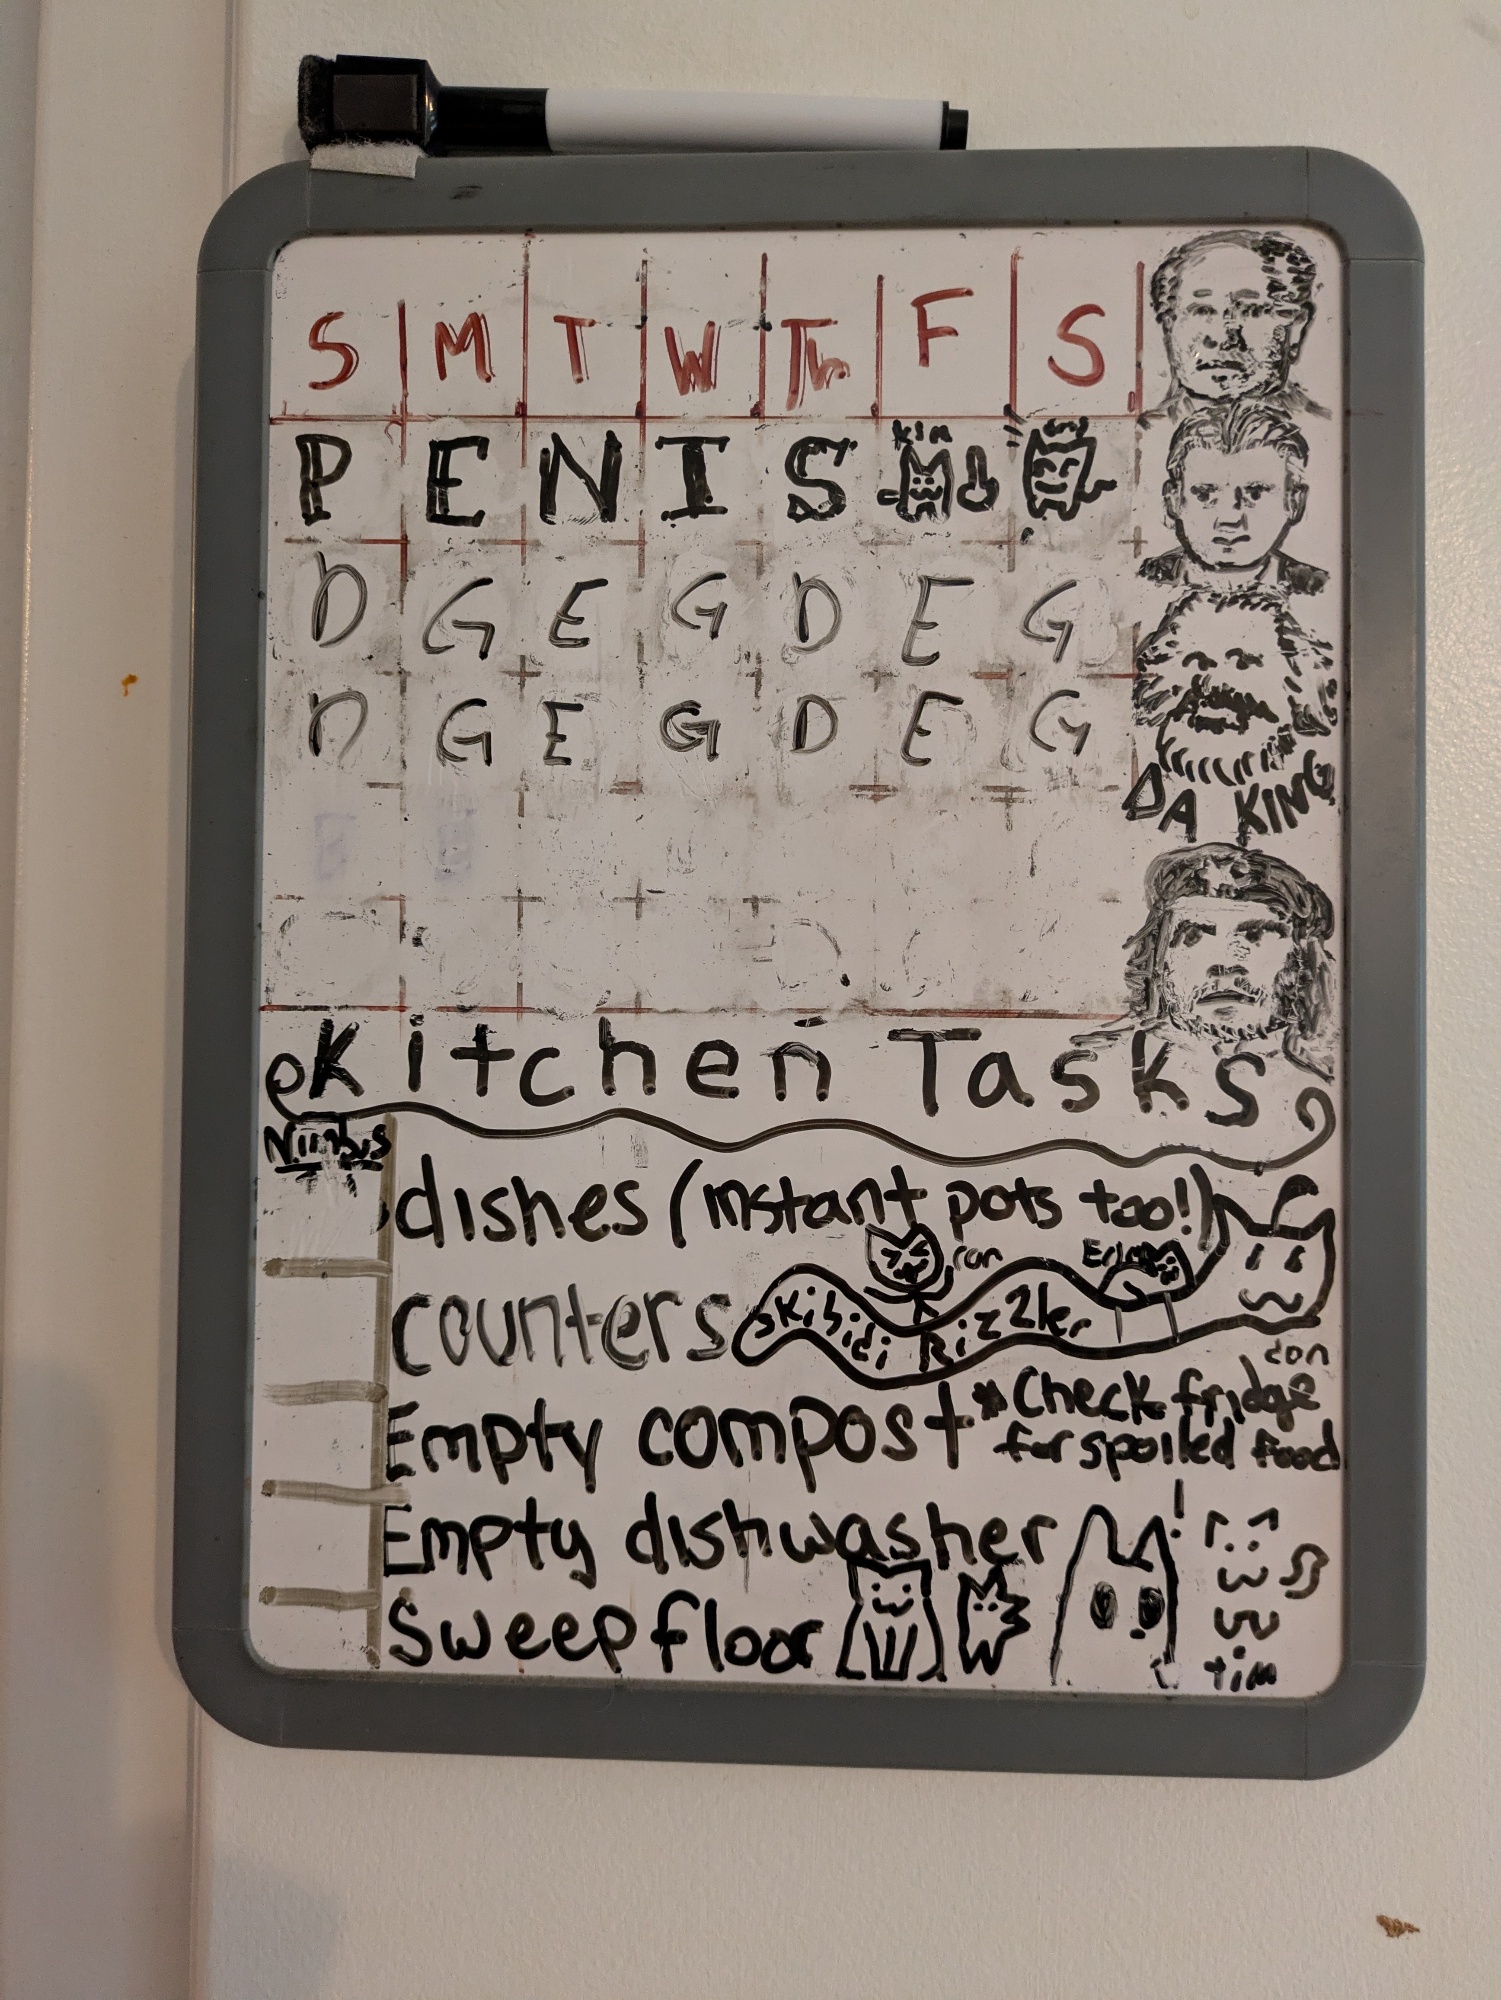 S M T W Th F S
P E N I S kin
D G E G D E G
D G E G D E G
DA KING
Kitchen Tasks
Nimbis
dishes (instant pots too!)
ron Eric
counters skibidi Rizzler
don
Empty compost *Check fridge
for spoiled food
Empty dishwasher !
Sweep floor
tim